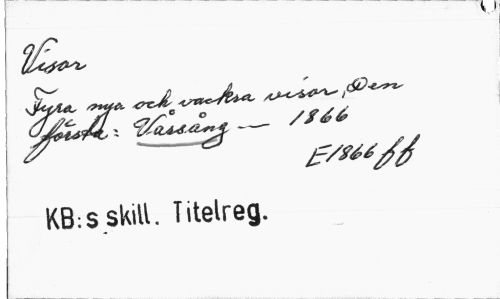 Visor
Fyra nya och vackra visor, Den
första: Vårsång — 1866
E1866 ff
KB:s skill. Titelreg.